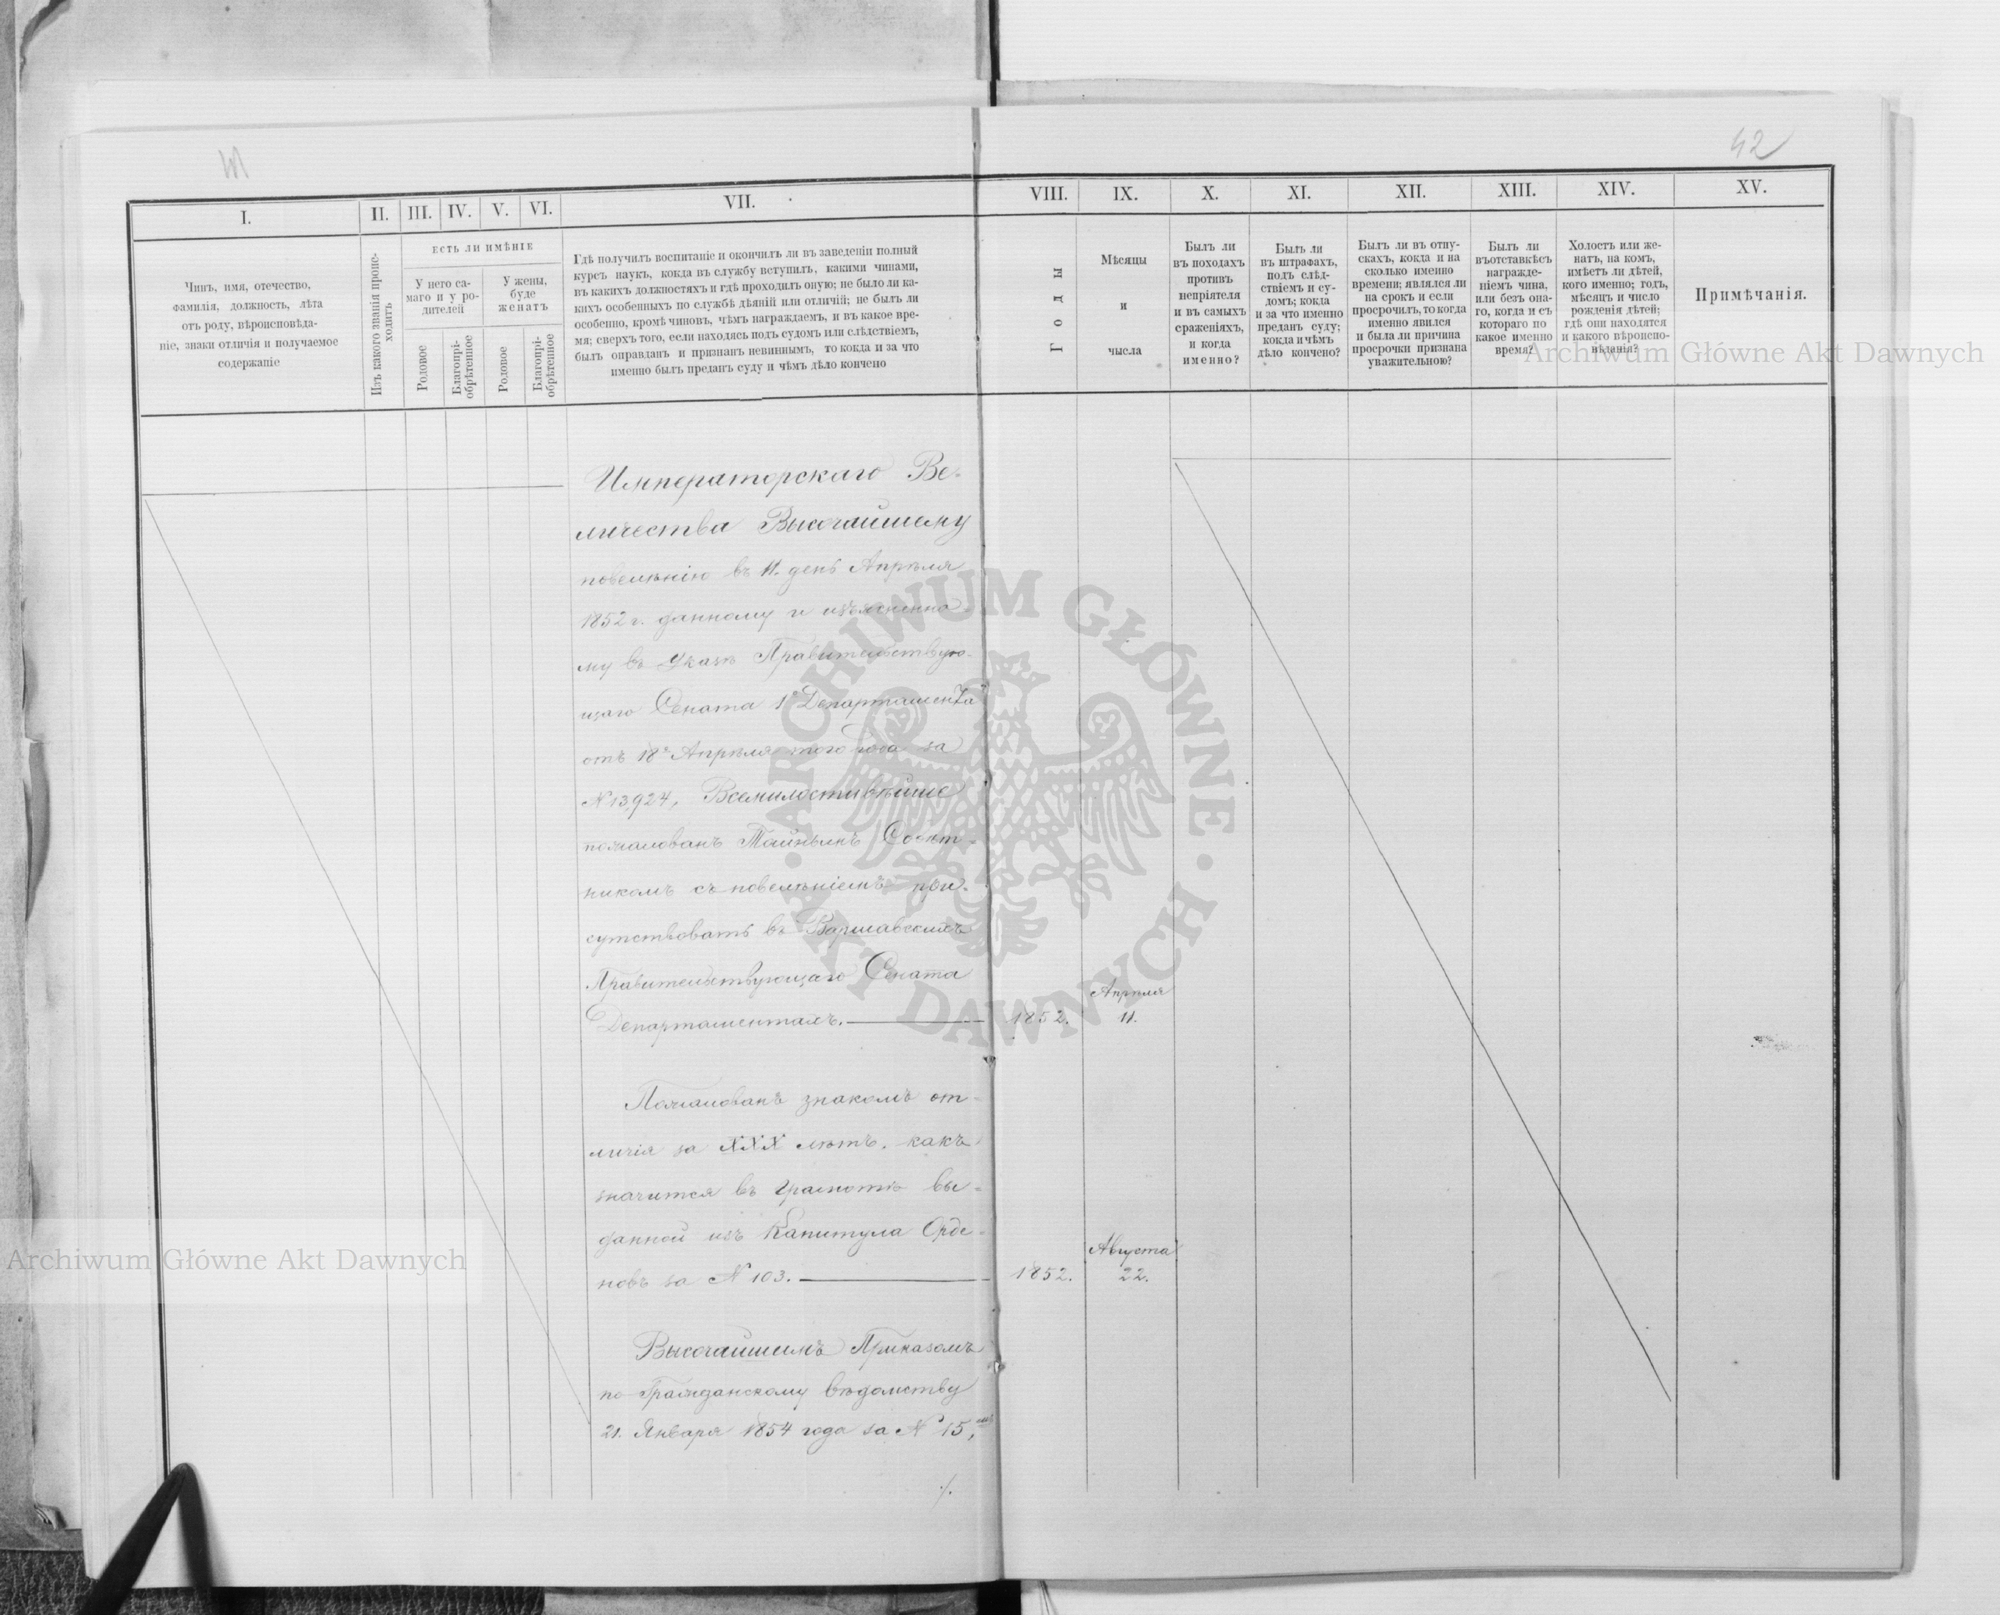 42
I.
II.
III.
IV.
V.
VI.
VII.
VIII.
IX.
X.
XI.
XII.
XIII.
XIV.
XV.
Чинъ, имя, отечество,
фамилія, должность, лѣта
отъ роду, вѣроисповѣда-
ніе, знаки отличія и получаемое
содержаніе
Изъ какого званія проис-
ходитъ
ЕСТЬ ЛИ ИМѢНІЕ
У него са-
маго и у ро-
дителей
У жены,
буде
женатъ
Родовое
Благопрі-
обрѣтенное
Родовое
Благопрі-
обрѣтенное
Гдѣ получилъ воспитаніе и окончилъ ли въ заведеніи полный
курсъ наукъ, кокда въ службу вступилъ, какими чинами,
въ какихъ должностяхъ и гдѣ проходилъ оную; не было ли ка-
кихъ особенныхъ по службѣ дѣяній или отличій; не былъ ли
особенно, кромѣ чиновъ, чѣмъ награждаемъ, и въ какое вре-
мя; сверхъ того, если находясь подъ судомъ или слѣдствіемъ,
былъ оправданъ и признанъ невиннымъ, то кокда и за что
именно былъ преданъ суду и чѣмъ дѣло кончено
Годы
Мѣсяцы
и
числа
Былъ ли
въ походахъ
противъ
непріятеля
и въ самыхъ
сраженіяхъ,
и когда
именно?
Былъ ли
въ штрафахъ,
подъ слѣд-
ствіемъ и су-
домъ; кокда
и за что именно
преданъ суду;
кокда и чѣмъ
дѣло кончено?
Былъ ли въ отпу-
скахъ, кокда и на
сколько именно
времени; являлся ли
на срокъ и если
просрочилъ, то когда
именно явился
и была ли причина
просрочки признана
уважительною?
Былъ ли
въотставкѣсъ
награжде-
ніемъ чина,
или безъ она-
го, когда и съ
котораго по
какое именно
время?
Холостъ или же-
натъ, на комъ,
имѣетъ ли дѣтей,
кого именно; годъ,
мѣсяцъ и число
рожденія дѣтей;
гдѣ они находятся
и какого вѣроиспо-
вѣданія?
Примѣчанія.
Императорскаго Ве-
личества Высочайшему
повелѣнію въ 11. день Апрѣля
1852 г. данному и изъясненно-
му въ Указѣ Правительствую-
щаго Сената 1го Департамента
отъ 18го Апрѣля того года за
N 13,924, Всемилостивѣйше
пожалованъ Тайнымъ Совѣт-
никомъ съ повелѣніемъ при-
сутствовать въ Варшавскихъ
Правительствующаго Сената
Департаментахъ.
1852.
Апрѣля
11.
Пожалованъ знакомъ от-
личія за XXX лѣтъ, какъ
значится въ Грамотѣ вы-
данной изъ Капитула Орде-
новъ за N 103.
1852.
Августа
22.
Высочайшимъ Приказомъ
по Гражданскому вѣдомству
21. Января 1854 года за N 15,
./.
Archiwum Główne Akt Dawnych
Archiwum Główne Akt Dawnych
ARCHIWUM GŁÓWNE · AKT DAWNYCH ·